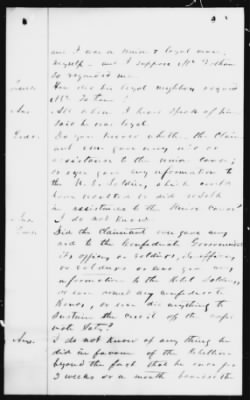 and I was a Union & loyal man
myself - and I suppose Mr. Tatum
so regarded me.
How did his loyal neighbors regard
Mr. Tatum?
Ans All whom I heard speak of him
said he was loyal.
Ques. Do you know whether the Claim
ant ever gave any aid or
assistance to the Union cause;
or ever gave any information to
the U.S. Soldiers, which could
have resulted or did result
in assistance to the Union cause?
Ans. I do not know.
Ques. Did the Claimant ever gave any
aid to the Confederate Government
its officers or soldiers, to officers
or soldiers or ever give any
information to the Rebel Soldiers,
or ever own any Confederate
Bonds, or ever did anything to
sustain the credit of the
States?
Ans. I do not know of any thing he
did in favour of the Rebellion
beyond the fact that he was for
2 weeks or a month